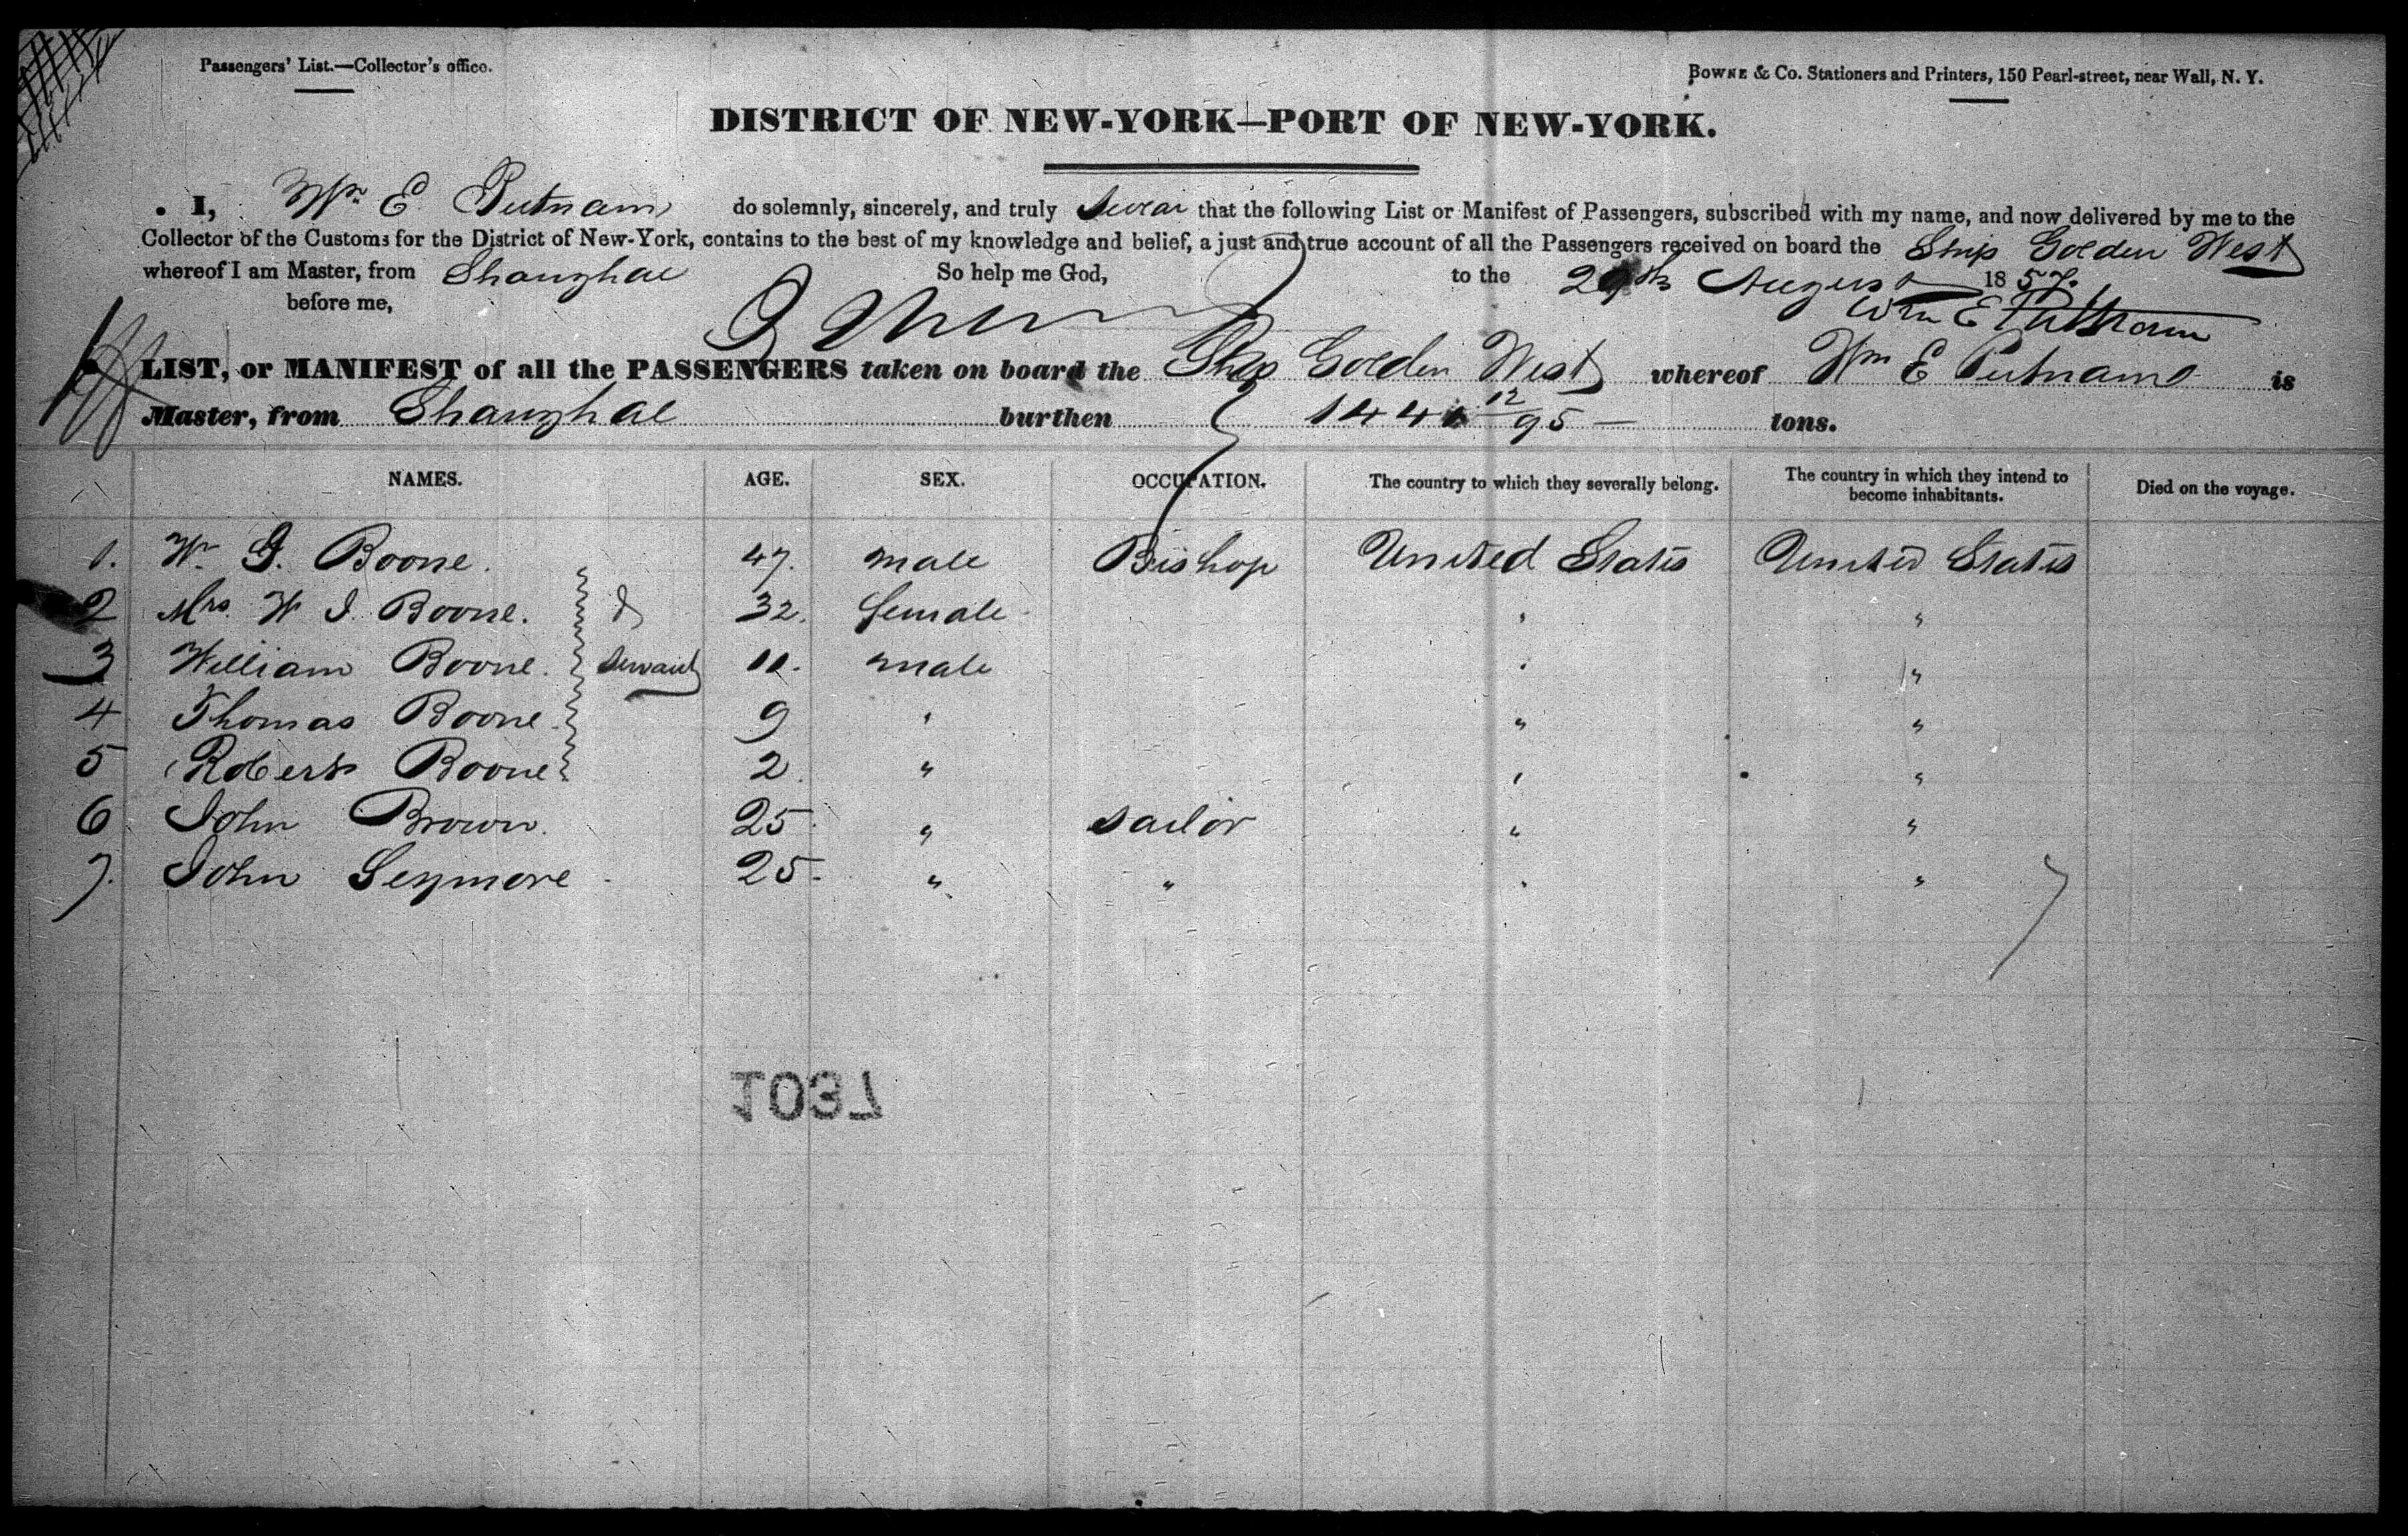 Passengers' List.—Collector's office.
Bowne & Co. Stationers and Printers, 150 Pearl-street, near Wall, N. Y.
DISTRICT OF NEW-YORK—PORT OF NEW-YORK.
I, Wm E Putnam do solemnly, sincerely, and truly swear that the following List or Manifest of Passengers, subscribed with my name, and now delivered by me to the
Collector of the Customs for the District of New-York, contains to the best of my knowledge and belief, a just and true account of all the Passengers received on board the Ship Golden West
whereof I am Master, from Shanghae So help me God, to the 29th August 1857.
before me, Wm E Putnam
LIST, or MANIFEST of all the PASSENGERS taken on board the Ship Golden West whereof Wm E Putnam is
Master, from Shanghae burthen 144 12/95 tons.
NAMES. AGE. SEX. OCCUPATION. The country to which they severally belong. The country in which they intend to become inhabitants. Died on the voyage.
1. Wm J. Boone. 47. male Bishop United States United States
2 Mrs W J Boone. & 32. female " "
3 William Boone. servant 11. male " "
4 Thomas Boone. 9 " " "
5 Robert Boone 2. " " "
6 John Brown. 25. " sailor " "
7. John Seymore 25. " " " "
1037